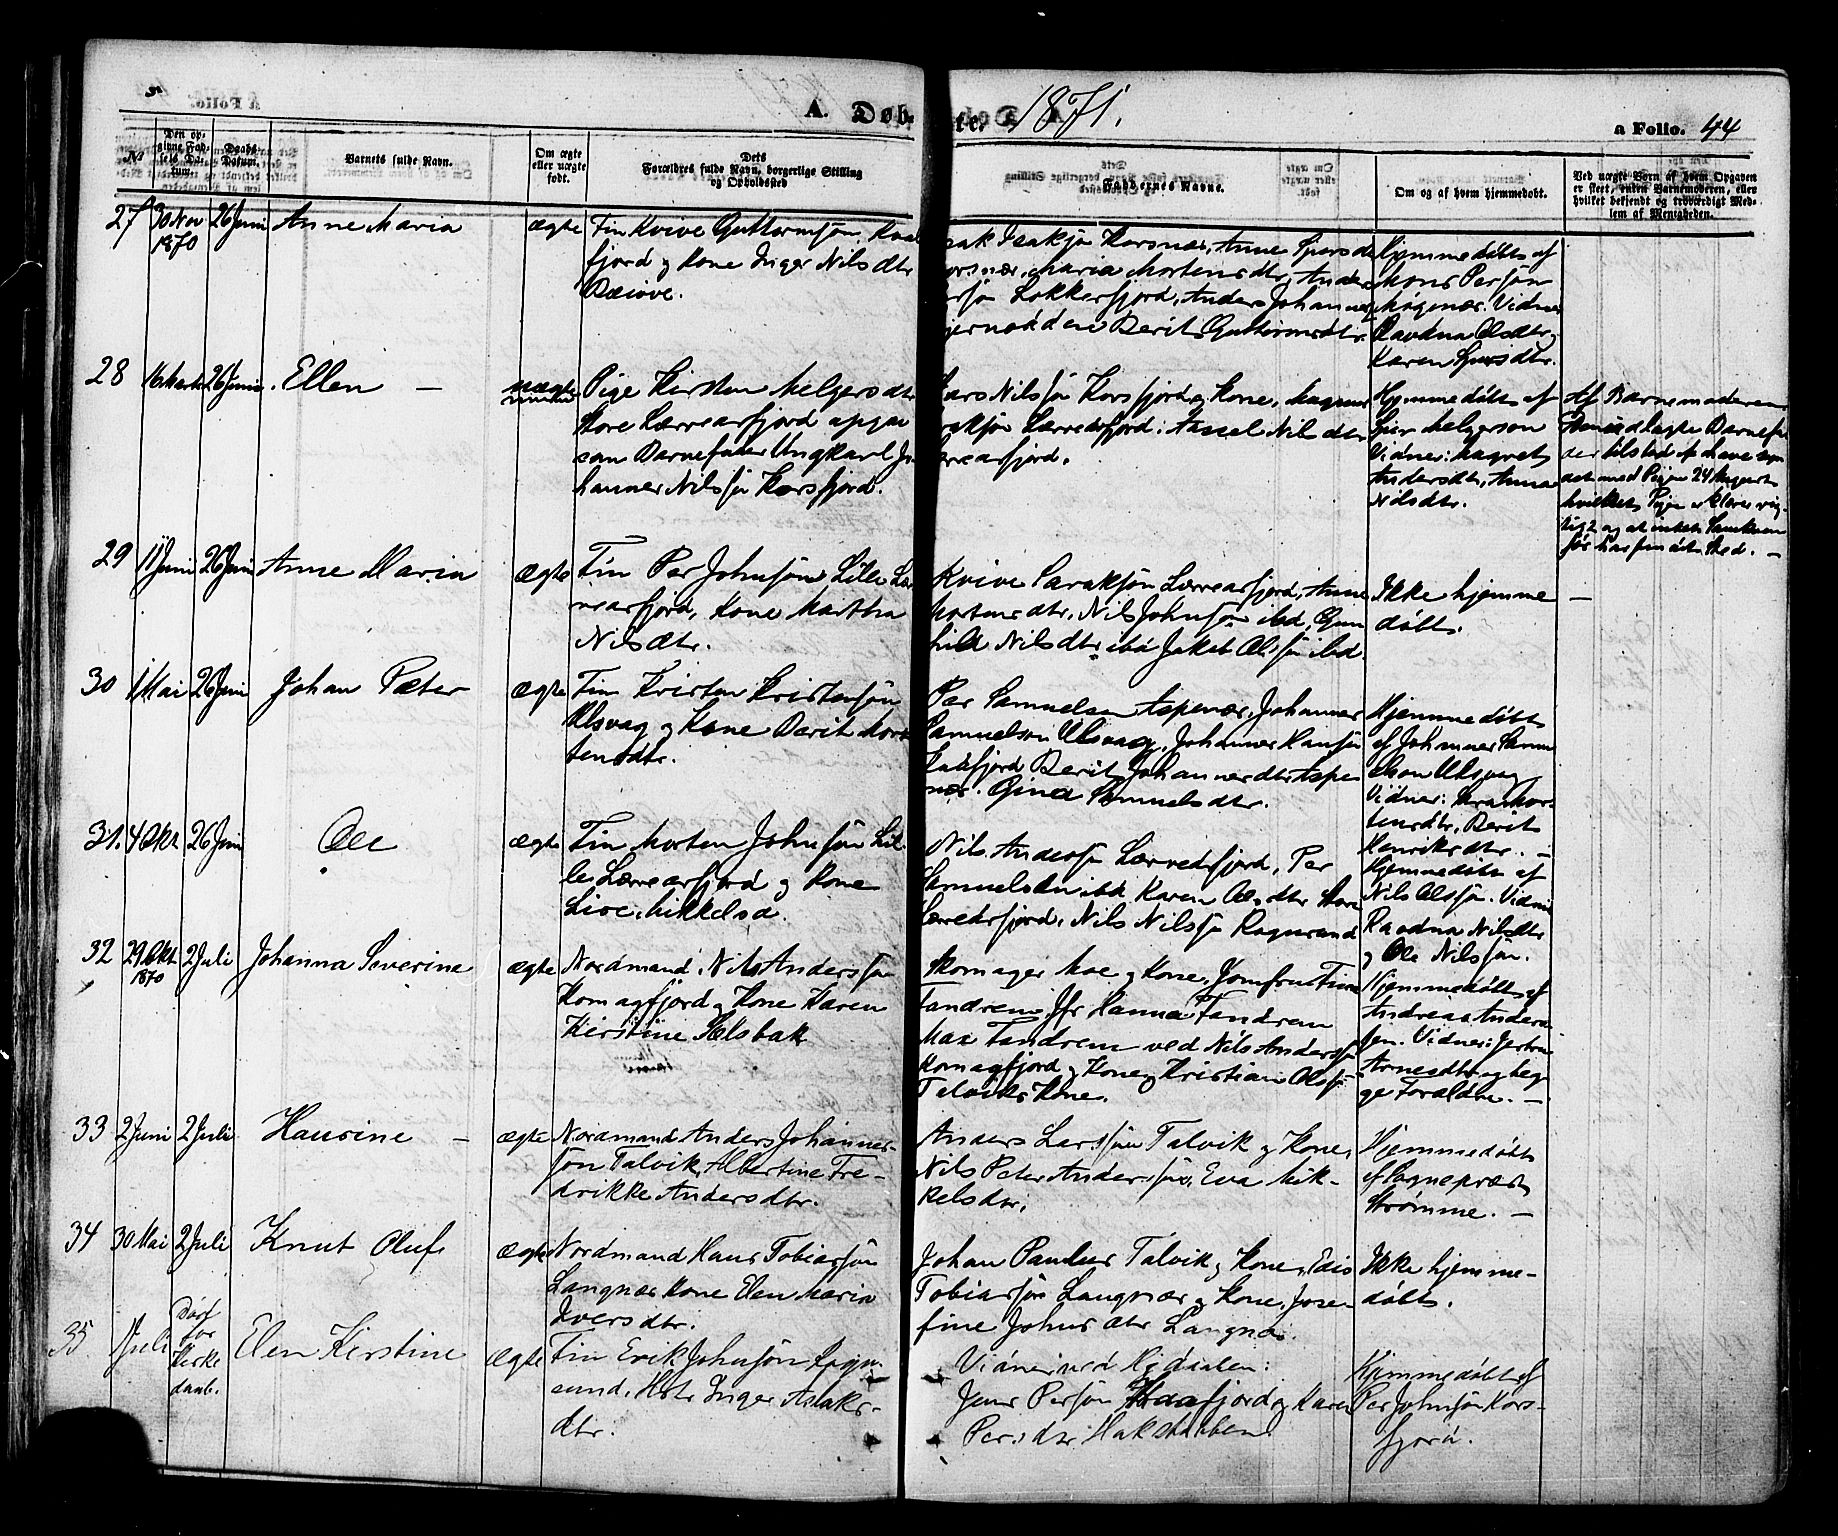 A. Døbte. 1871.
a Folio. 44
№
Den opgivne Fødsels Datum.
Daabs Datum.
Barnets fulde Navn.
Om ægte eller uægte født.
Dets Forældres fulde Navn, borgerlige Stilling og Opholdssted
Faddernes Navne.
Om og af hvem hjemmedøbt.
Ved uægte Børn af hvem Opgaven er skeet, enten Barnemoderen, eller hvilket bekjendt og troværdigt Medlem af Menigheden.
27 30 Nov 1870 26 Juni Anne Maria ægte
Fin Kvive Guttormsøn
fjord og Kone Inger Nilsdtr
Isak Isaksøn Korsnæs, Anne
Maria Mortensdtr,
Lokkerfjord, Anders
Berit Guttormsdtr.
Hjemmedøbt af
Mons Persøn
Vidner
Ravdna Olsdtr,
Karen
28 26 Juni Ellen – uægte
Pige Kirsten Melgersdtr
Store Lerresfjord opgav
som Barnefader Ungkarl Jo-
hannes Nilssøn Korsfjord.
Lars Nilsøn Korsfjord og Kone,
Lerresfjord. Nilsdtr
Hjemmedøbt af
Melgersøn
Vidner: Magret
Andersdtr, Anna
Nilsdtr.
Af Barnemoderen.
Barnefa-
der tilstod at have
det med Pigen 24 August
hvilket Pigen erklærer
og at intet
fandt Sted. –
29 11 Juni 26 Juni Anne Maria ægte
Fin Per Johnsøn Lille
fjord, Kone Martha
Nilsdtr.
Kvive Saraksøn Lerresfjord, Anne
Mortensdtr, Nils Johnsøn ibd, Gun-
hild Nilsdtr ibd Jakob Olssøn ibd.
Ikke hjemme
døbt.
–
30 1 Mai 26 Juni Johan Peter ægte
Fin Kristen Kristensøn
Ulsvag og Kone Berit Mor-
tensdtr.
Per Samuelsen Aspenæs, Johannes
Samuelsen Ulsvag, Johannes Hansøn
Berit Johannesdtr Aspe-
næs. Samuelsdtr.
Hjemmedøbt
af Johannes Samu-
elson Ulsvag
Vidner: Mor-
tensdtr, Berit
Henriksdtr. –
31. 4 Okt 26 Juni Ole ægte
Fin Morten Johnsøn Lil-
le Lerresfjord og Kone
Mikkelsd.
Nils Andersøn Lerresfjord, Per
Samuelsen ibd Karen Olsdtr Store
Lerresfjord, Nils Nilssøn Rognsund
Hjemmedøbt af
Nils Olssøn. Vidner
Ravdna Nilsdtr
og Ole Nilssøn.
32 29 Okt 1870 2 Juli Johanna Severine ægte
Nordmand Nils Anderssøn
Komagfjord og Kone Karen
Kirstine Selsbak
Skomager Moe og Kone, Jomfru
Fandrem, Jfr Hanna Fandrem
Max Fandrem ved Nils Anderssøn
Komagfjord og Kone og Kristian Olsøn
Talviks Kone.
Hjemmedøbt af
Andreas Anders-
Vidner:
Arnesdtr og beg-
ge Forældre. –
33 2 Juni 2 Juli Hansine – ægte
Nordmand Anders Johannes-
søn Talvik, Albertine Fre-
drikke Andersdtr.
Anders Larssøn Talvik og Kone,
Nils Peter Anderssøn, Eva Mik-
kelsdtr.
Hjemmedøbt
af Sognepræst
Strømme. –
34 30 Mai 2 Juli Knut Oluf ægte
Nordmand Hans Tobiassøn
Langnæs Kone Elen Maria
Iversdtr.
Johan Paulus Talvik og Kone,
Tobiassøn Langnæs og Kone, Jose-
fine Johnsdtr Langnæs.
Ikke hjemme-
døbt.
35. 1 Juli Død før Kirkedaab. Elen Kirstine ægte
Fin Erik Johnsøn Rogn-
sund, Hstr Inger Aslaks-
dtr.
Vidner ved Hjdaaben:
Jens Persøn og Karen
Persdtr Hakstabben
Hjemmedøbt af
Per Johnsøn Kors-
fjord.